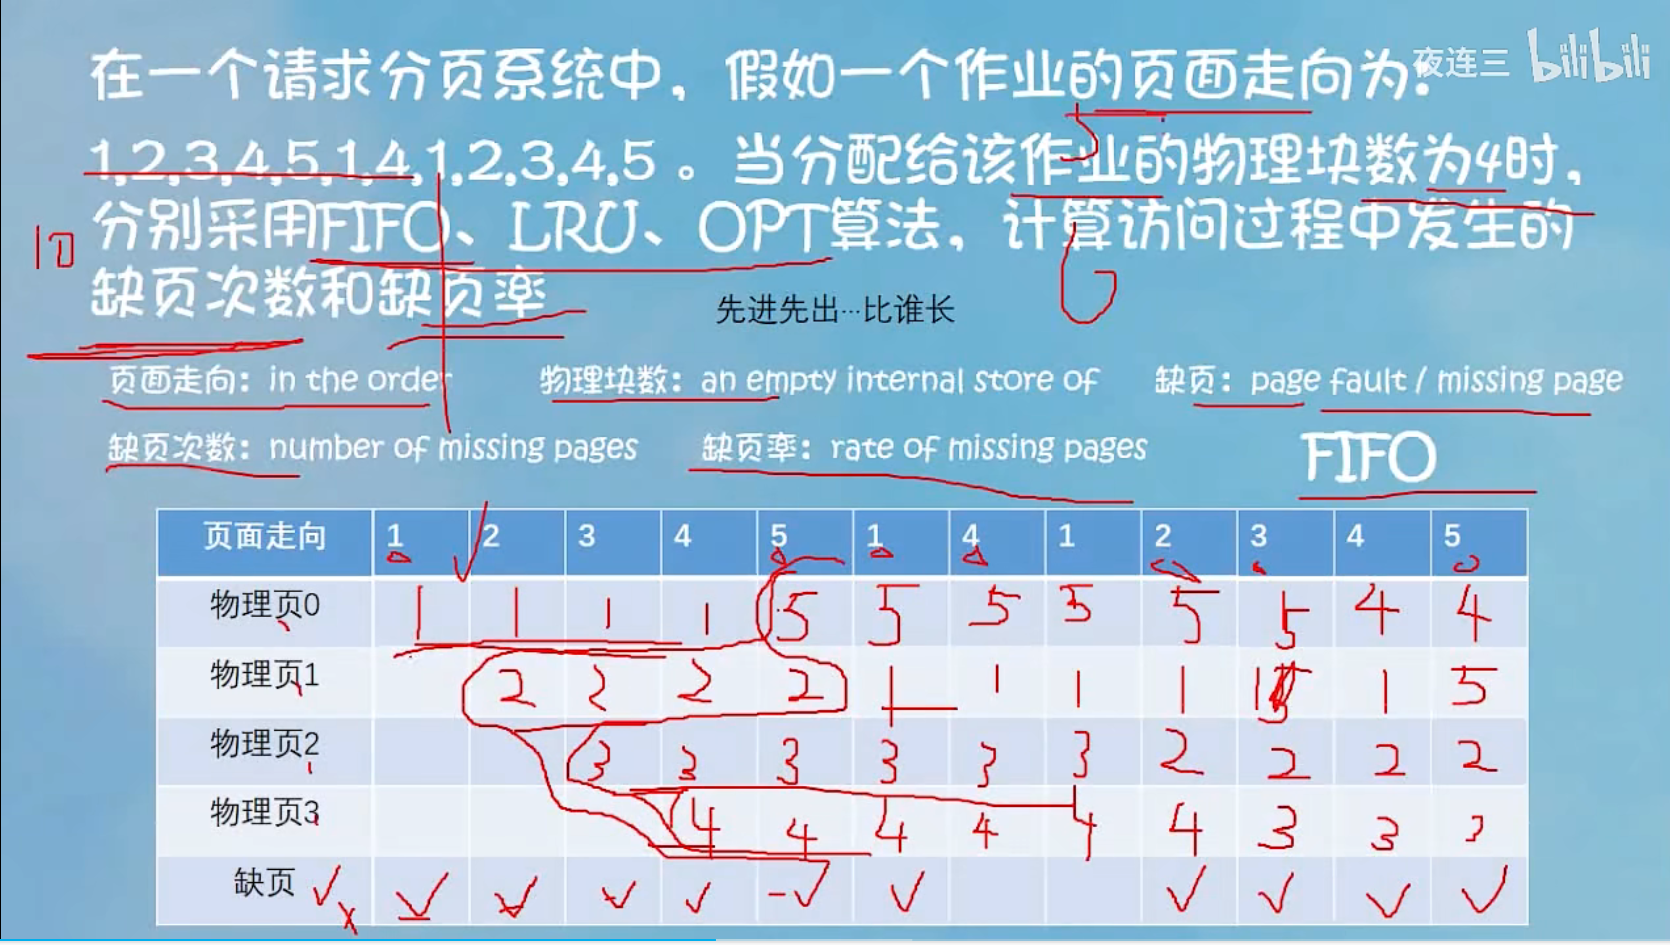 夜连三 bilibili
在一个请求分页系统中，假如一个作业的页面走向为：
1,2,3,4,5,1,4,1,2,3,4,5 。当分配给该作业的物理块数为4时，
分别采用FIFO、LRU、OPT算法，计算访问过程中发生的
缺页次数和缺页率
10
先进先出…比谁长
页面走向：in the order 物理块数：an empty internal store of 缺页：page fault / missing page
缺页次数：number of missing pages 缺页率：rate of missing pages
FIFO
页面走向 1 2 3 4 5 1 4 1 2 3 4 5
物理页0 1 1 1 1 5 5 5 5 5 5 4 4
物理页1 2 2 2 2 1 1 1 1 1 1 5
物理页2 3 3 3 3 3 3 2 2 2 2
物理页3 4 4 4 4 4 4 3 3 3
缺页 ✓ x ✓ ✓ ✓ ✓ ✓ ✓ ✓ ✓ ✓ ✓